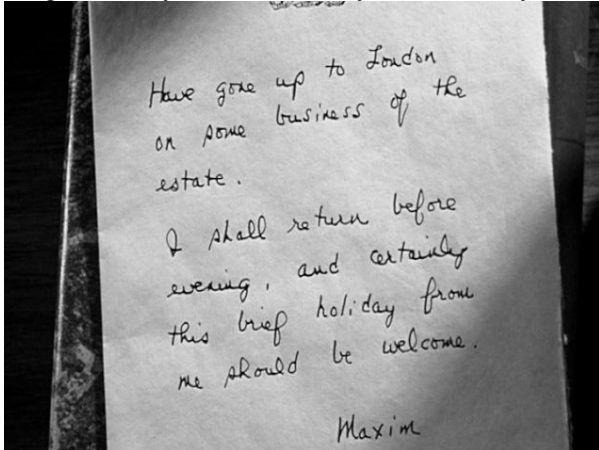 Have gone up to London
on some business of the
estate.
I shall return before
evening, and certainly
this brief holiday from
me should be welcome.
Maxim